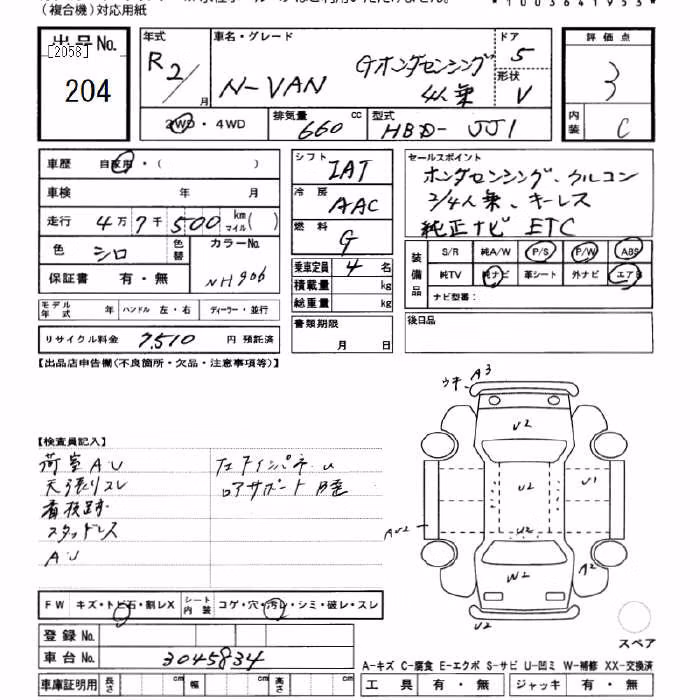 (複合機)対応用紙
*1003641953*
出品No.
[2058]
204
年式
R2/
月
車名・グレード
N-VAN
Gホンダセンシング
4人乗
ドア
5
形状
V
評価点
3
内装
C
2WD・4WD
排気量
660
cc
型式
HBD-JJ1
車歴
自家用・( )
車検 年 月
走行 4万7千500 km マイル( )
色 シロ
色替
カラーNo.
NH906
保証書 有・無
モデル年式 年 ハンドル 左・右 ディーラー・並行
リサイクル料金 7,510 円 預託済
シフト
IAT
冷房
AAC
燃料
G
乗車定員 4 名
積載量 kg
総重量 kg
書類期限
月 日
セールスポイント
ホンダセンシング、クルコン
2/4人乗、キーレス
純正ナビ ETC
装備品
S/R 純A/W P/S P/W ABS
純TV 純ナビ 革シート 外ナビ エアB
ナビ型番:
後日品
【出品店申告欄(不良箇所・欠品・注意事項等)】
【検査員記入】
荷室AU
天張りスレ
看板跡
スタッドレス
AU
ロアサポート
ウキ
A3
U2
U2
U1
AU2
U2
A2
W2
U2
スペア
FW キズ・トビ石・割レX
シート内装 コゲ・穴・汚レ・シミ・破レ・スレ
登録No.
車台No. 3045834
車庫証明用 長さ cm 幅 cm 高さ cm
A-キズ C-腐食 E-エクボ S-サビ U-凹ミ W-補修 XX-交換済
工具 有・無 ジャッキ 有・無